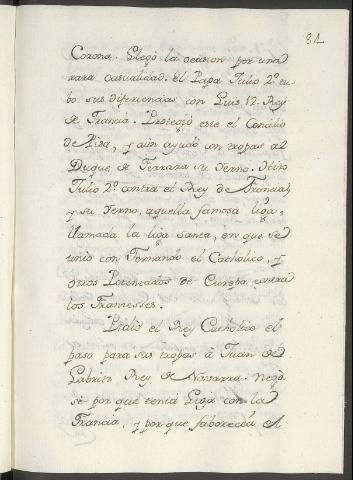 81
Corona. Llegó la ocasion por una
rara casualidad. el Papa Julio 2º tu-
bo sus diferencias con Luis 12. Rey
de Francia. Protegió este el Concilio
de Pisa, y aun ayudó con tropas al
Duque de Ferrara su Yerno. Hizo
Julio 2º contra el Rey de Francia,
y su Yerno, aquella famosa liga,
llamada la liga santa, en que se
unió con Fernando el Catholico, y
otros Potentados de Europa contra
los Franceses.
Pidió el Rey Catholico el
paso para sus tropas à Juan de
Labrit Rey de Navarra. Negó
se por que tenia Liga con la
Francia, y por que faborecia al